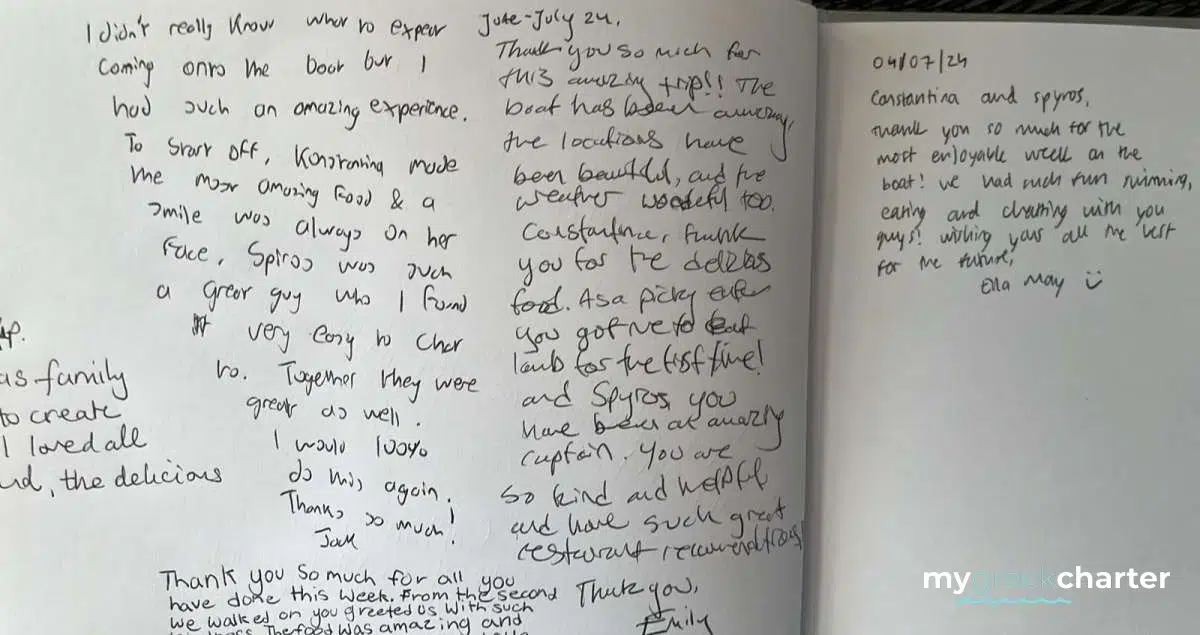 I didn't really know what to expect
coming onto the boat but I
had such an amazing experience.
To start off, Konstantina made
the most amazing food & a
smile was always on her
face, Spiros was such
a great guy who I found
very easy to chat
to. Together they were
great as well.
I would 100%
do this again.
Thanks so much!
Jack
June-July 24.
Thank you so much for
this amazing trip!! The
boat has been amazing,
the locations have
been beautiful, and the
weather too.
thank
you for the
food. As a picky eater
you got me to eat
lamb for the first time!
and Spyros, you
have been an amazing
captain. You are
so kind and helpful
and have such great
restaurant
Thank you,
Emily
as family
to create
I loved all
, the delicious
Thank you so much for all you
have done this week. From the second
we walked on you greeted us with such
The food was amazing and
04/07/24
Constantina and Spyros,
thank you so much for the
most enjoyable week on the
boat! we had such fun swimming,
eating and chatting with you
guys! wishing you all the best
for the future,
Ella May
mygreekcharter